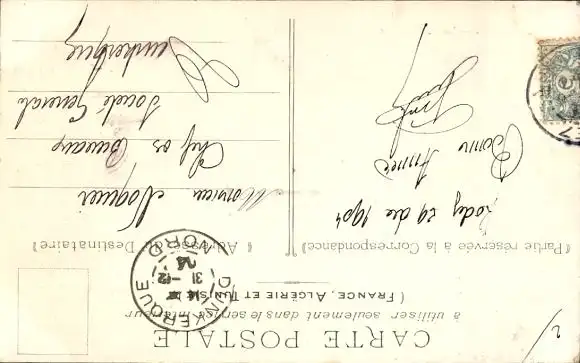 CARTE POSTALE
à utiliser seulement dans le service intérieur
(FRANCE, ALGÉRIE ET TUNISIE)
(Partie réservée à la Correspondance)
(Adresse du Destinataire)
Rodez 29 dec 1904
Bonne Année
Monsieur Noguier
Chef des Bureaux
Société Générale
Dunkerque
DUNKERQUE
14
31 -12
04
NORD
2